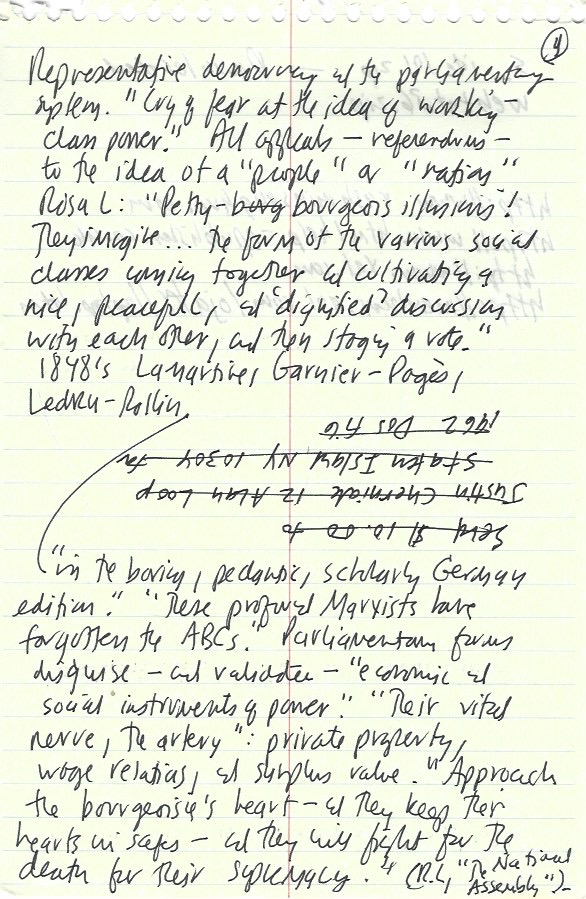 4
Representative democracy and the parliamentary
system. "Cry of fear at the idea of working-
class power." All appeals — referendums —
to the idea of a "people" or "nation"
Rosa L: "Petty-borg bourgeois illusions!
They imagine.... the form of the various social
classes coming together and cultivating a
nice, peaceful, and 'dignified' discussion
with each other, and then staging a vote."
1848's Lamartine, Garnier-Pagès,
Ledru-Rollin
1962 Dos A.G.
Staten Island NY 10304 for
Justin Chemicide 12 Alan Loop
Send $10.00 to
"in the boring, pedantic, scholarly German
edition." "These profound Marxists have
forgotten the ABCs." Parliamentary forms
disguise — and validate — "economic and
social instruments of power." "Their vital
nerve, the artery": private property,
wage relations, and surplus value. "Approach
the bourgeoisie's heart — and they keep their
hearts in safes — and they will fight for the
death for their supremacy." (R.L, "The National
Assembly")-